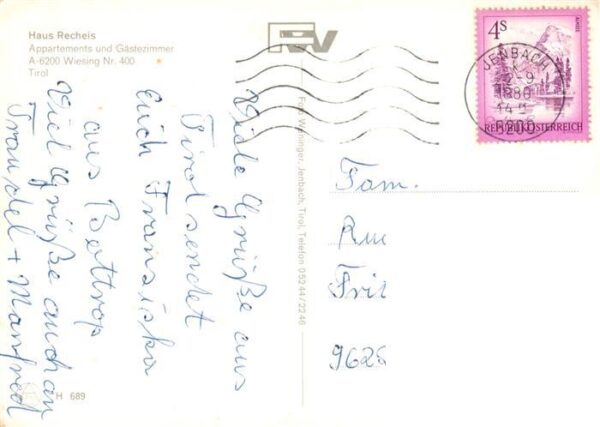 Haus Recheis
Appartements und Gästezimmer
A-6200 Wiesing Nr. 400
Tirol
Viele Grüße aus
Tirol sendet
Euch Franziska
aus Bottrop
Viel Grüße auch an
Traudel + Manfred
H 689
Foto Weninger, Jenbach, Tirol, Telefon 0 52 44 / 22 46
4S
REPUBLIK ÖSTERREICH
JENBACH
6200
Fam.
9625